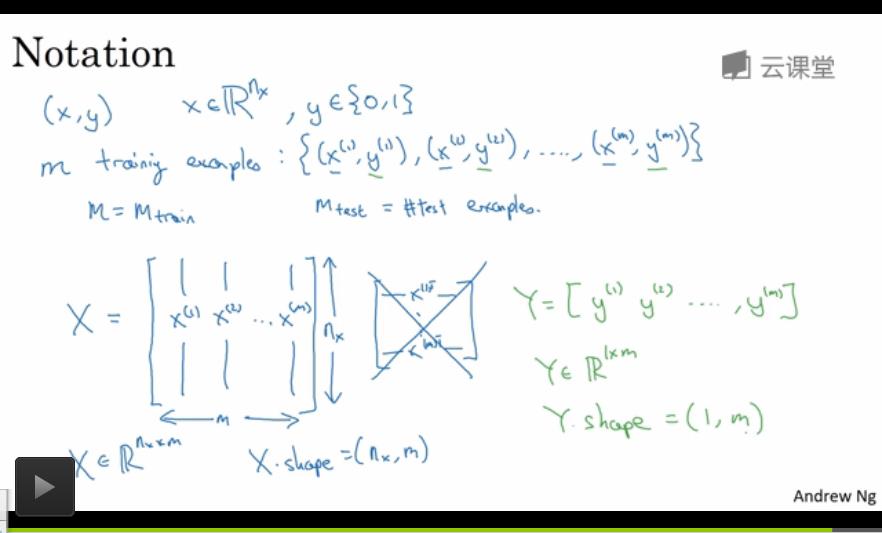 Notation
云课堂
(x,y) x∈ℝ^{n_x}, y∈{0,1}
m training examples: {(x^{(1)},y^{(1)}), (x^{(2)},y^{(2)}), ...., (x^{(m)},y^{(m)})}
M = M_{train} M_{test} = #test examples.
X = [x^{(1)} x^{(2)} ... x^{(m)}] n_x
m
x^{(1)T}
x^{(m)T}
Y = [y^{(1)} y^{(2)} ...., y^{(m)}]
Y∈ℝ^{1×m}
Y.shape = (1, m)
X∈ℝ^{n_x×m} X.shape = (n_x, m)
Andrew Ng